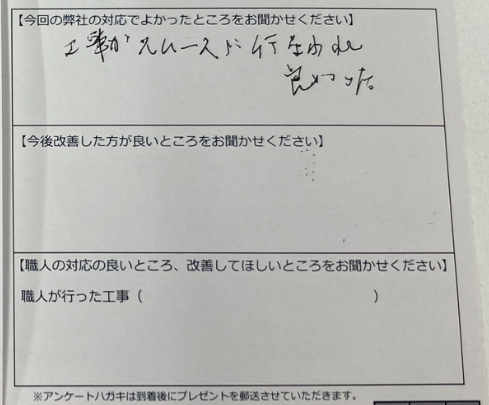 【今回の弊社の対応でよかったところをお聞かせください】
工事がスムースに行なわれ
良かった。
【今後改善した方が良いところをお聞かせください】
【職人の対応の良いところ、改善してほしいところをお聞かせください】
職人が行った工事（　　　　　　　　　　　　　　　）
※アンケートハガキは到着後にプレゼントを郵送させていただきます。